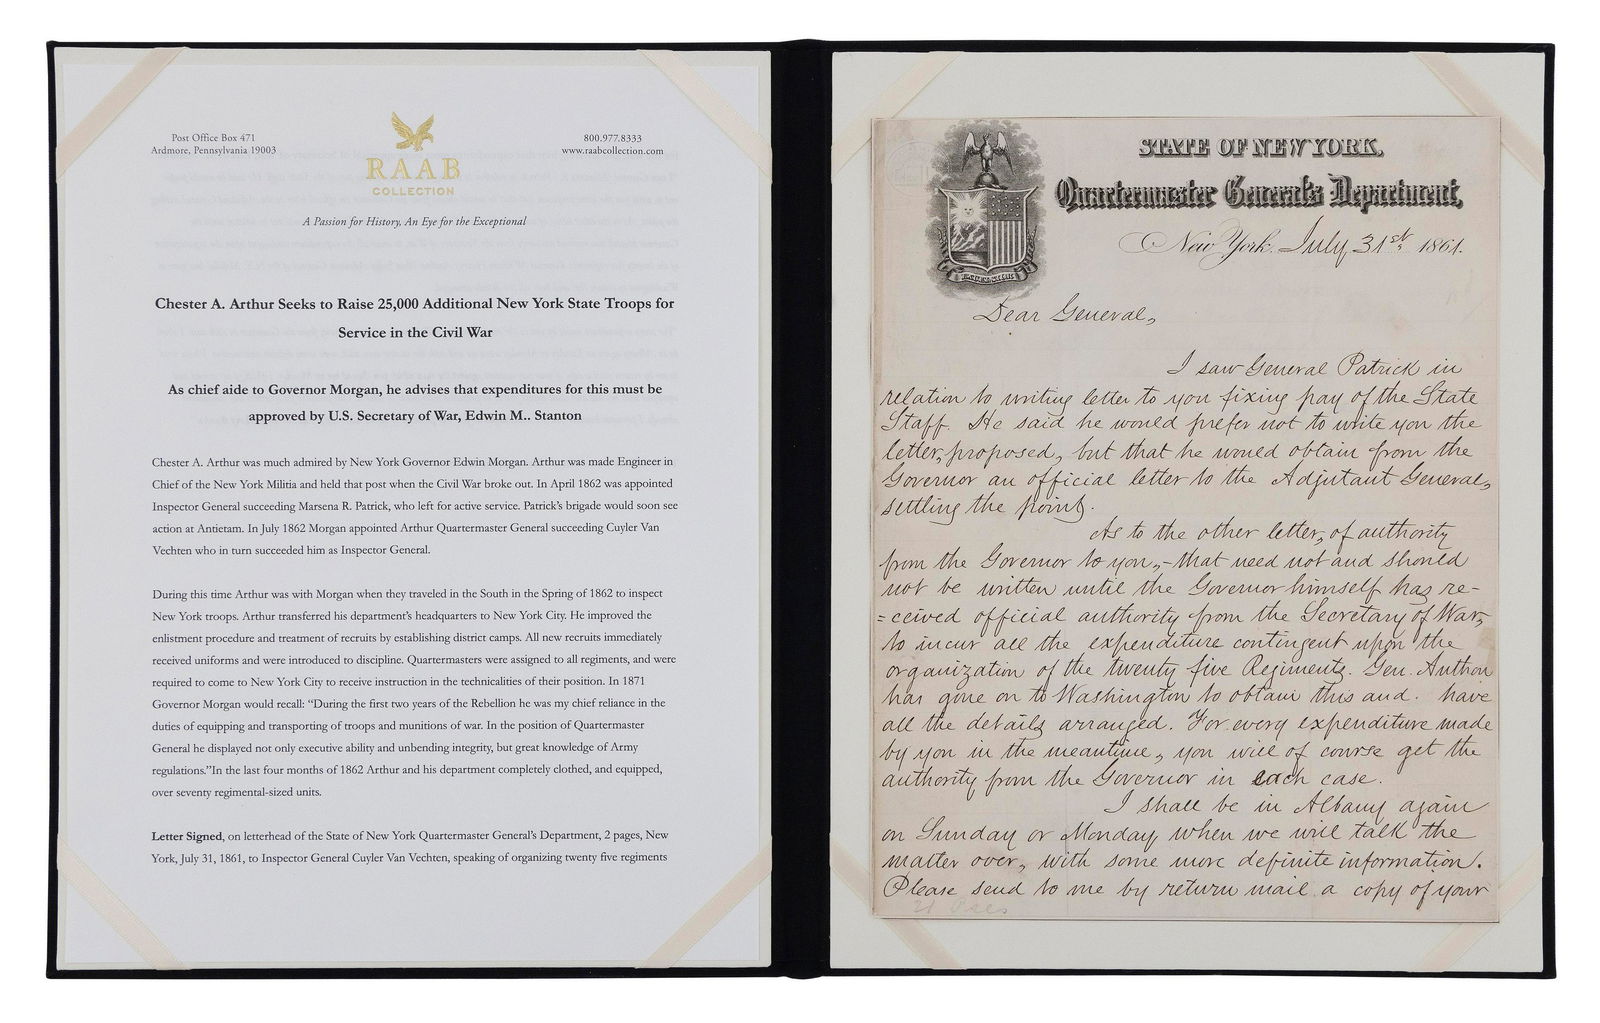 Post Office Box 471
Ardmore, Pennsylvania 19003
RAAB
COLLECTION
800.977.8333
www.raabcollection.com
A Passion for History, An Eye for the Exceptional
Chester A. Arthur Seeks to Raise 25,000 Additional New York State Troops for
Service in the Civil War
As chief aide to Governor Morgan, he advises that expenditures for this must be
approved by U.S. Secretary of War, Edwin M.. Stanton
Chester A. Arthur was much admired by New York Governor Edwin Morgan. Arthur was made Engineer in
Chief of the New York Militia and held that post when the Civil War broke out. In April 1862 was appointed
Inspector General succeeding Marsena R. Patrick, who left for active service. Patrick's brigade would soon see
action at Antietam. In July 1862 Morgan appointed Arthur Quartermaster General succeeding Cuyler Van
Vechten who in turn succeeded him as Inspector General.
During this time Arthur was with Morgan when they traveled in the South in the Spring of 1862 to inspect
New York troops. Arthur transferred his department's headquarters to New York City. He improved the
enlistment procedure and treatment of recruits by establishing district camps. All new recruits immediately
received uniforms and were introduced to discipline. Quartermasters were assigned to all regiments, and were
required to come to New York City to receive instruction in the technicalities of their position. In 1871
Governor Morgan would recall: “During the first two years of the Rebellion he was my chief reliance in the
duties of equipping and transporting of troops and munitions of war. In the position of Quartermaster
General he displayed not only executive ability and unbending integrity, but great knowledge of Army
regulations.”In the last four months of 1862 Arthur and his department completely clothed, and equipped,
over seventy regimental-sized units.
Letter Signed, on letterhead of the State of New York Quartermaster General's Department, 2 pages, New
York, July 31, 1861, to Inspector General Cuyler Van Vechten, speaking of organizing twenty five regiments
EXCELSIOR
STATE OF NEW YORK.
Quartermaster General's Department,
New York, July 31st, 1861.
Dear General,
I saw General Patrick in
relation to writing letter to you fixing pay of the State
Staff. He said he would prefer not to write you the
letter, proposed, but that he would obtain from the
Governor an official letter to the Adjutant General,
settling the point.
As to the other letter, of authority
from the Governor to you,-that need not and should
not be written until the Governor himself has re-
=ceived official authority from the Secretary of War,
to incur all the expenditure contingent upon the
organization of the twenty five Regiments. Gen. Anthon
has gone on to Washington to obtain this and. have
all the details arranged. For every expenditure made
by you in the meantime, you will of course get the
authority from the Governor in each case.
I shall be in Albany again
on Sunday or Monday, when we will talk the
matter over, with some more definite information.
Please send to me by return mail a copy of your